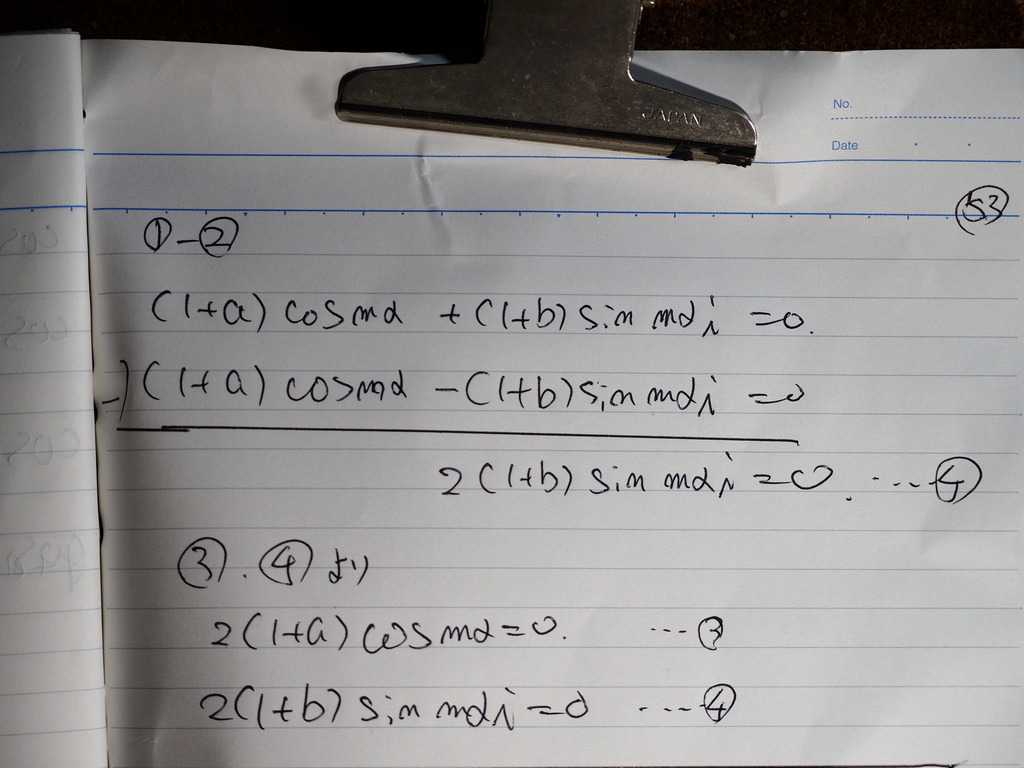 JAPAN
No.
Date
53
①-②
(1+a) cos mα + (1+b) sin mα i = 0.
-) (1+a) cos mα - (1+b) sin mα i = 0
2(1+b) sin mα i = 0. ....④
③.④より
2(1+a) cos mα = 0. ...③
2(1+b) sin mα i = 0 ....④